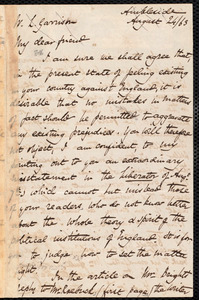 Ambleside
August 20/63
W. L. Garrison
My dear friend
I am sure we shall agree that,
in the present state of feeling existing
in your country against England, it is
desirable that no mistakes in matters
of fact should be permitted to aggravate
any existing prejudices. You will therefore
not object, I am confident, to my
pointing out to you an extraordinary
misstatement in the Liberator of Augt.
which cannot but mislead those
of your readers, who do not know better,
about the whole theory & spirit of the
political institutions of England. It is for
you to judge, how to set the matter
right.
In the article on Mr. Bright's
reply to Mr. Roebuck, first page, the writer